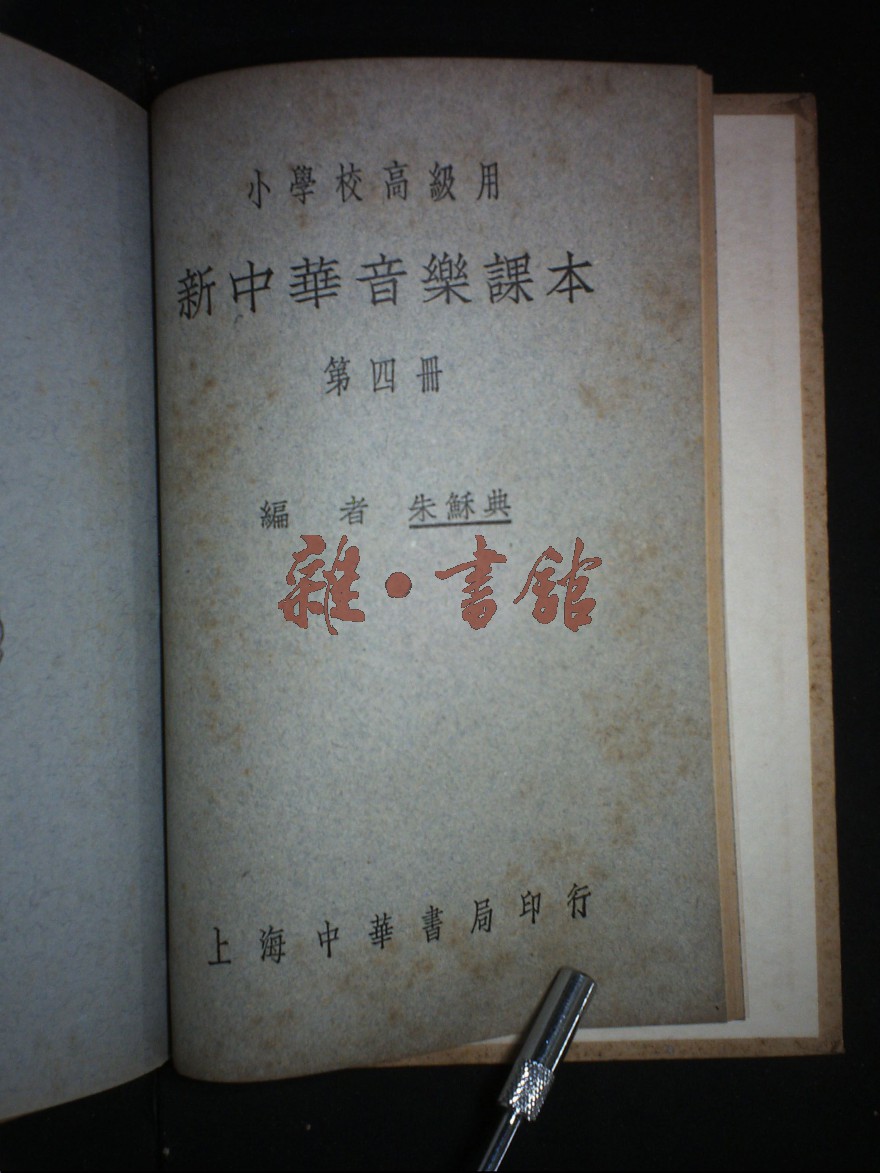 小學校高級用
新中華音樂課本
第四冊
編 者 朱穌典
雜•書館
上海中華書局印行